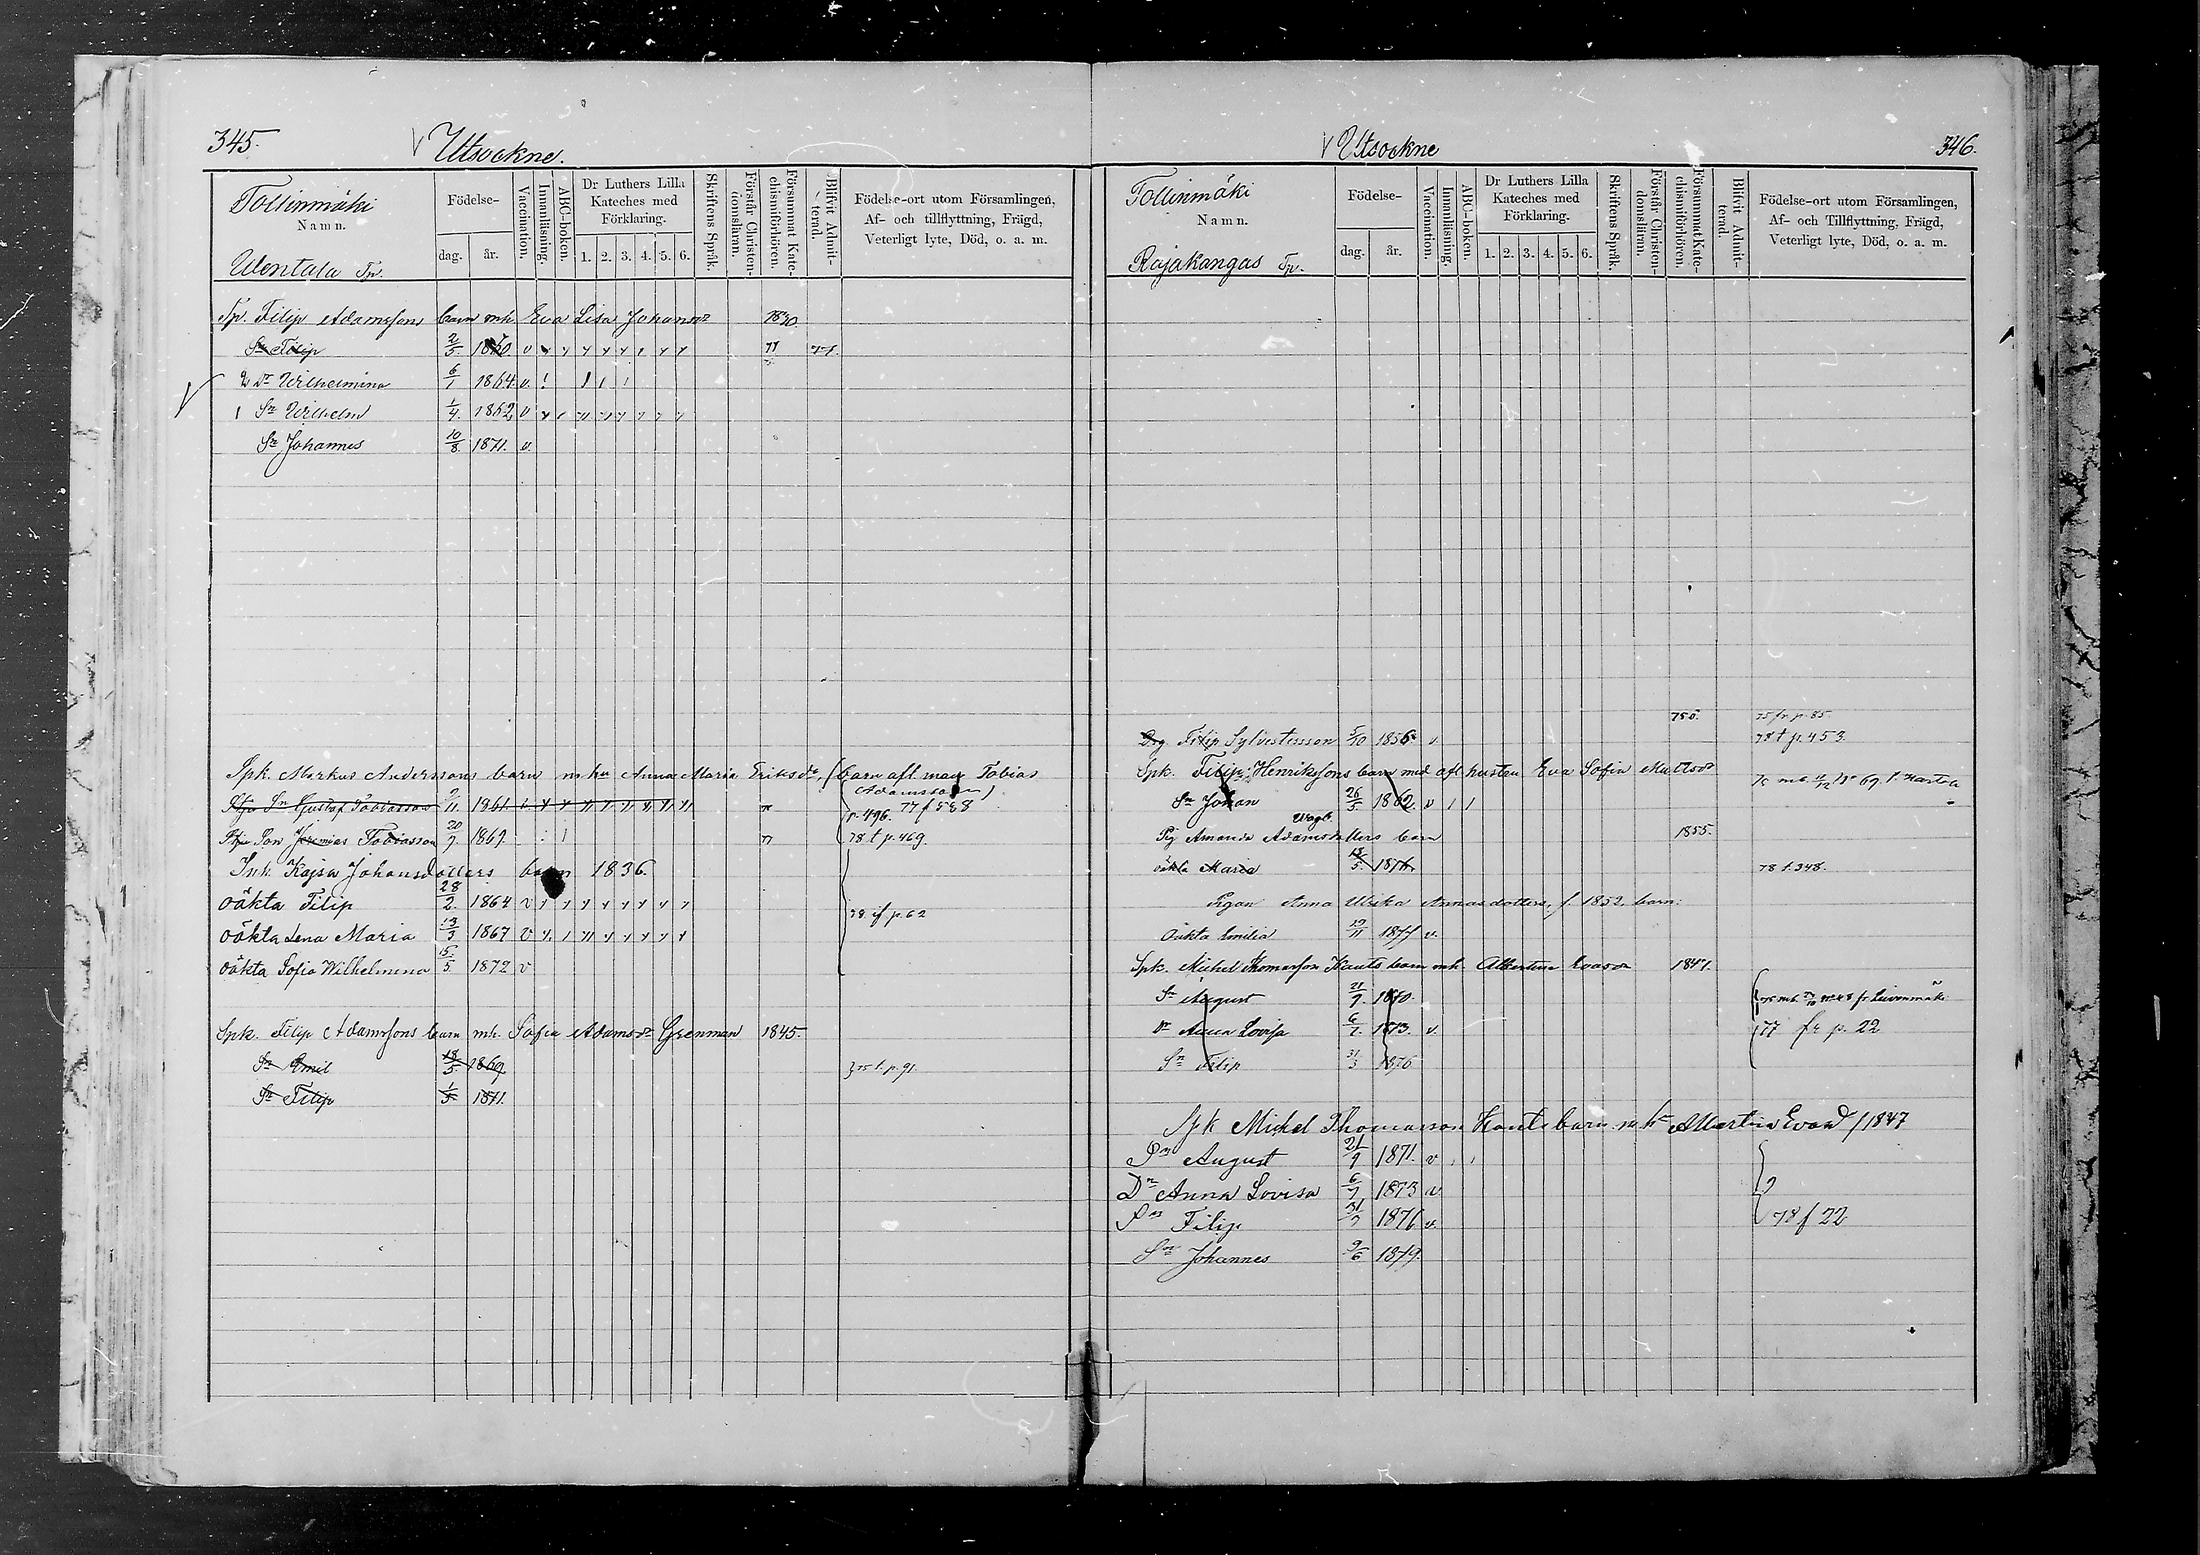 345.
Utsockne.
Tollinmäki
Namn.
Wentala Tp.
Födelse-
dag.
år.
Vaccination.
Innanläsning.
ABC-boken.
Dr Luthers Lilla
Kateches med
Förklaring.
1. 2. 3. 4. 5. 6.
Skriftens Språk.
Förstår Christen-
domsläran.
Försummat Kate-
chismiförhören.
Blifvit Admit-
terad.
Födelse-ort utom Församlingen,
Af- och tillflyttning, Frägd,
Veterligt lyte, Död, o. a. m.
Tp. Filip Adamssons barn mh Eva Lisa Johansdr 1830
Sn Filip 2/5. 1850 v 77
2 Dr Wilhelmina 6/1 1864 v.
1 Sn Wilhelm 1/4. 1862 v
Sn Johannes 10/8. 1871. v.
Spk. Markus Anderssons barn m hu Anna Maria Eriksdr, (barn afl. man Tobias
Adamsson)
Sn Gustaf Tobiasson 2/11. 1861 p. 496. 77 f 588
Son Jeremias Tobiasson 20/7. 1869. 78 t p. 469.
Inh. Kajsa Johansdotters barn 1836.
oäkta Filip 28/2. 1864 v
78 if p. 62
oäkta Lena Maria 13/3 1867 v
oäkta Sofia Wilhelmina 15/5. 1872 v
Spk. Filip Adamssons barn mh. Sofia Adamsdr Grenman 1845.
Sn Emil 18/5. 1869 75 t. p. 91.
Sn Filip 1/5 1871.
346.
Utsockne
Tollinmäki
Namn.
Rajakangas Tp.
Födelse-
dag.
år.
Vaccination.
Innanläsning.
ABC-boken.
Dr Luthers Lilla
Kateches med
Förklaring.
1. 2. 3. 4. 5. 6.
Skriftens Språk.
Förstår Christen-
domsläran.
Försummat Kate-
chismiförhören.
Blifvit Admit-
terad.
Födelse-ort utom Församlingen,
Af- och Tillflyttning, Frägd,
Veterligt lyte, Död, o. a. m.
75 fr. p. 85.
Drg. Filip Sylvestersson 5/10 1856 v 78 t p. 453
Spk. Filip Henrikssons barn med afl hustru Eva Sofia Mattsdr
Sn Johan 26/5 1862. v
Pig Amanda Adamsdotters barn 1855.
oäkta Maria 18/5. 1876. 78 t. 348.
Pigan Anna Ulrika Annasdotters, f. 1852, barn:
Oäkta Emilia 19/11 1877 v.
Spk. Michel Thomasson Kauts barn mh. Albertina Evasdr 1847.
Sn August 21/9. 1870.
Dr Anna Lovisa 6/7. 1873. v. 77 fr p. 22
Sn Filip 31/3 1876
Spk Michel Thomasson Kauts barn m hu Albertina Evasd f 1847
Sn August 21/9 1871. v
Dr Anna Lovisa 6/7 1873 v
Sn Filip 31/3 1876 v. 78 f 22
Sn Johannes 9/6 1879.